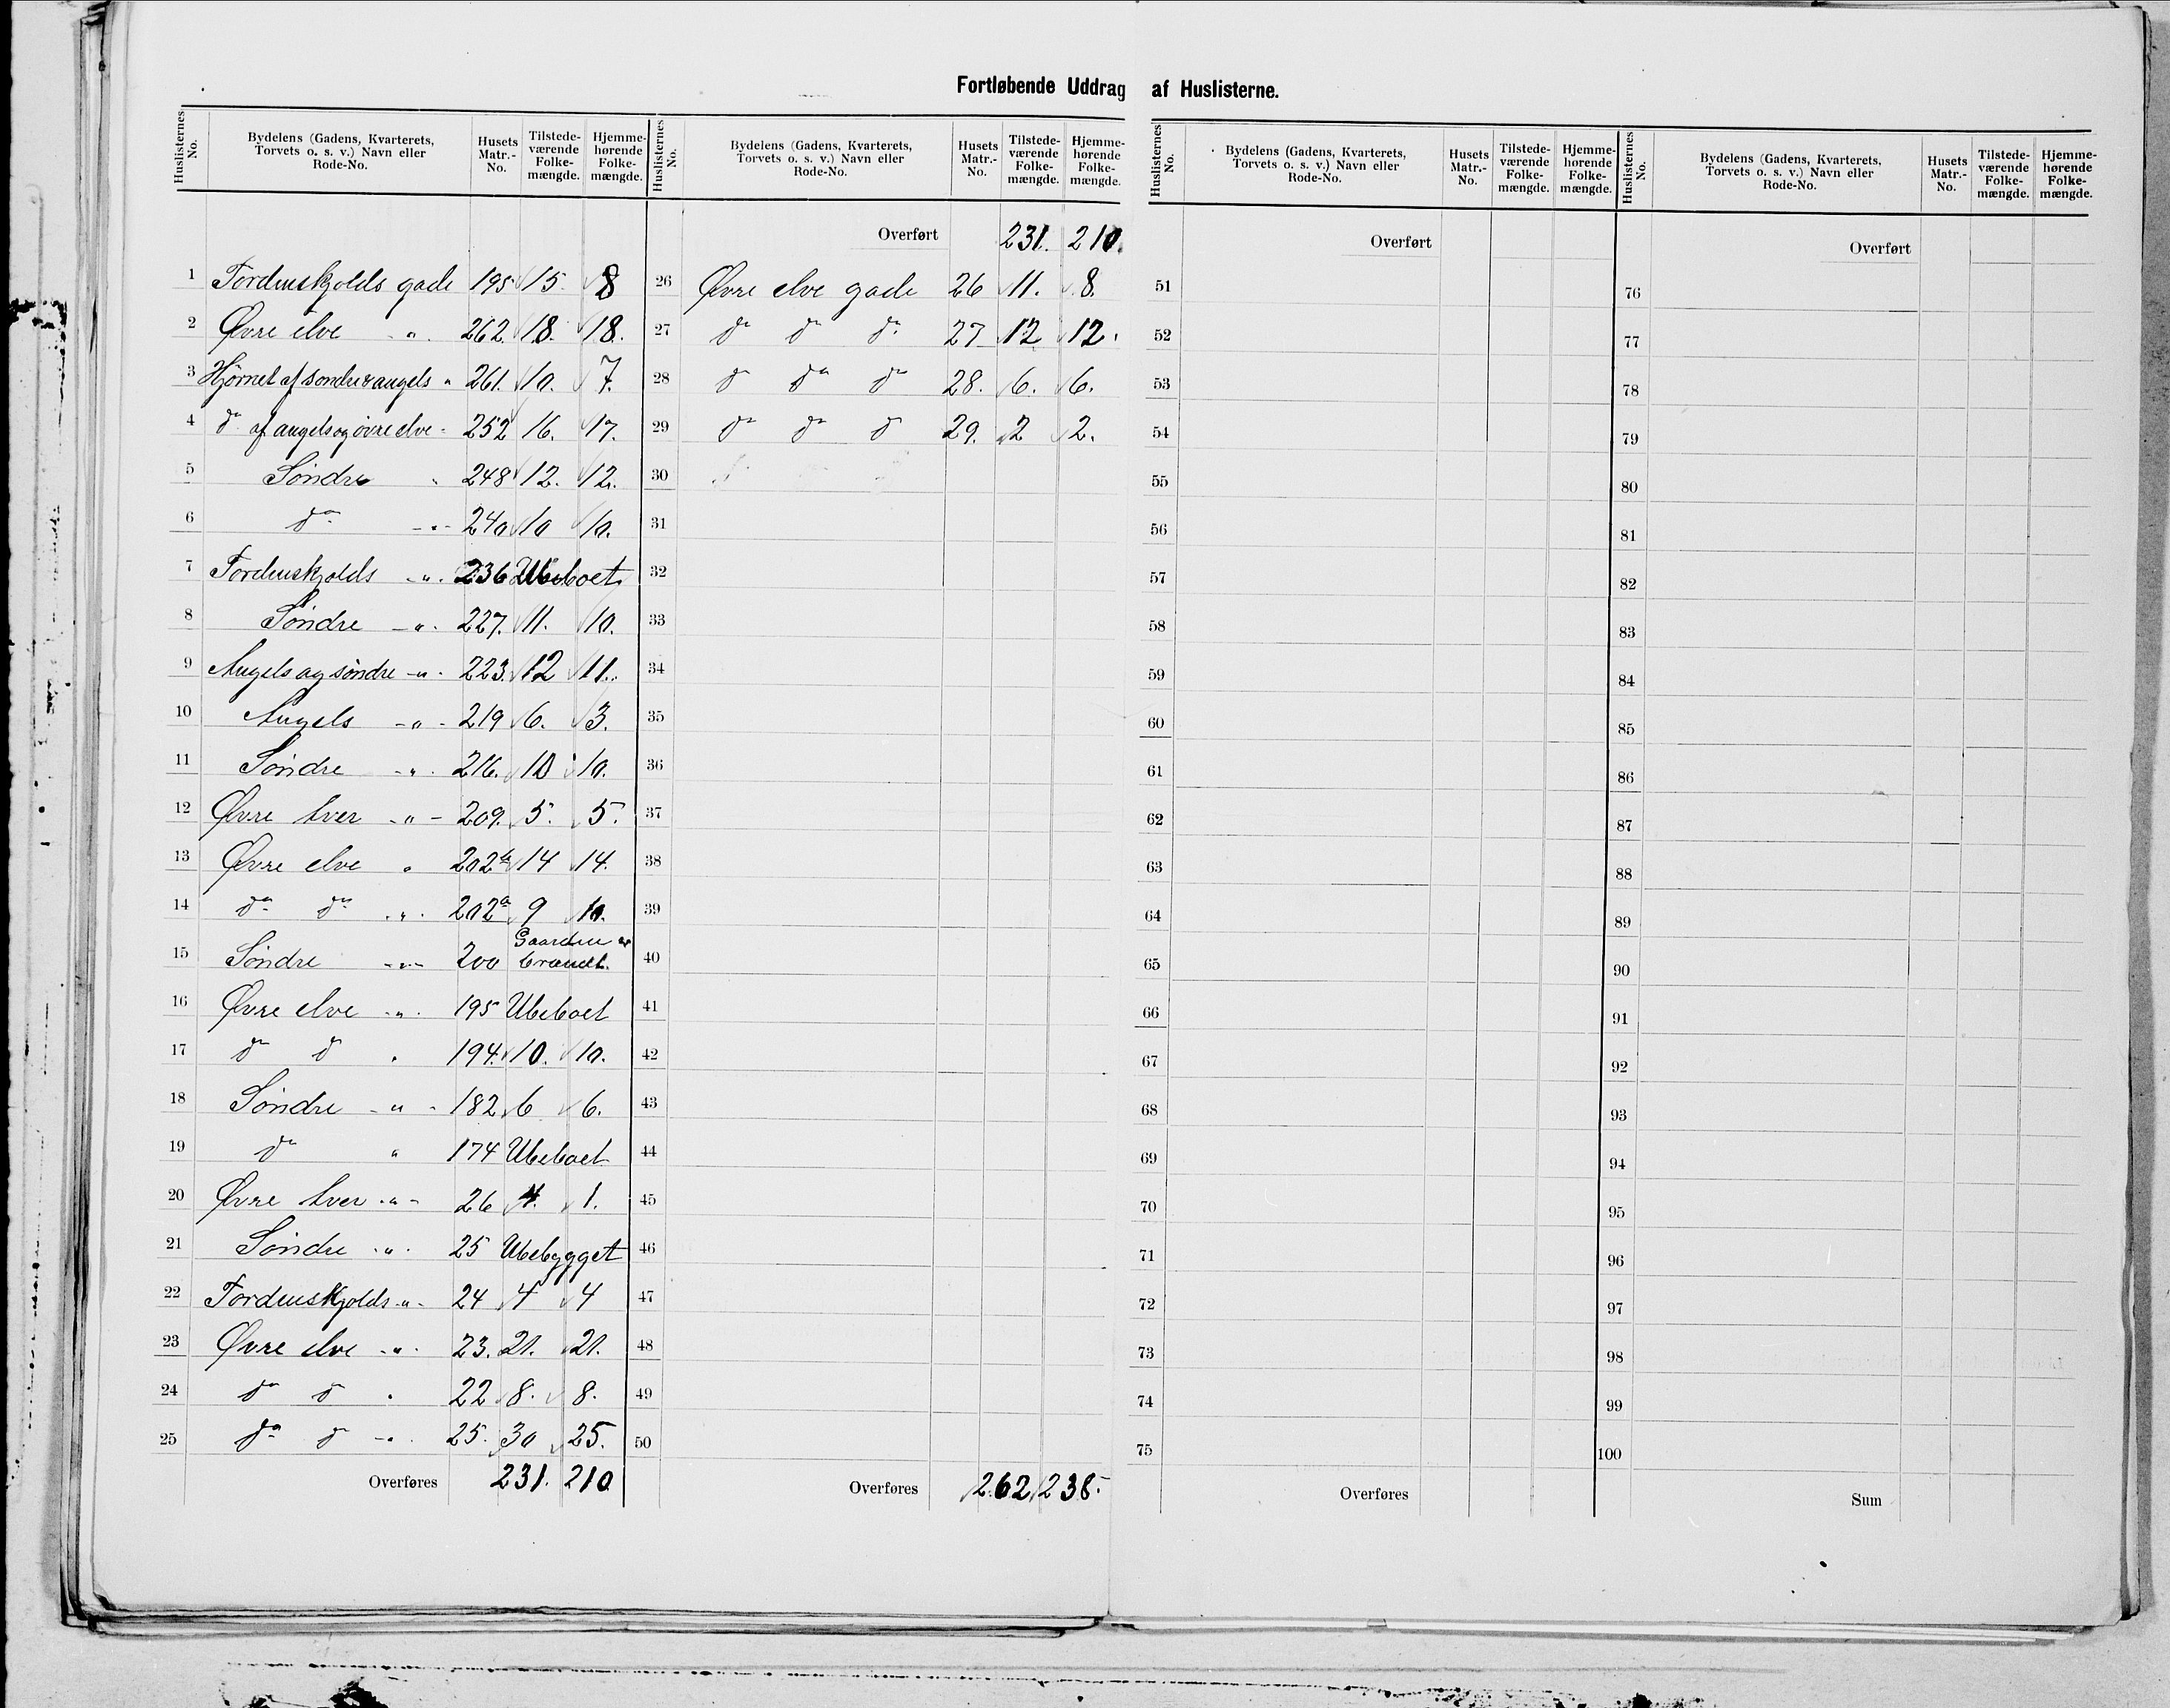 Fortløbende Uddrag af Huslisterne.
Huslisternes No. Bydelens (Gadens, Kvarterets, Torvets o. s. v.) Navn eller Rode-No. Husets Matr.-No. Tilstede-værende Folke-mængde. Hjemme-hørende Folke-mængde.
1 Tordenskjolds gade 195 15. 8
2 Øvre elve " 262. 18. 18.
3 Hjørnet af søndre & angels " 261. 10. 7.
4 do af angels og øvre elve " 252 16. 17.
5 Søndre " 248 12. 12.
6 do " 240 10 10.
7 Tordenskjolds " 236 Ubeboet
8 Søndre " 227. 11. 10.
9 Angels og søndre " 223. 12 11.
10 Angels " 219 6. 3.
11 Søndre " 216. 10 10.
12 Øvre tver " 209. 5. 5.
13 Øvre elve " 202b 14 14.
14 do do " 202a 9 10.
15 Søndre " 200 Gaarden er brændt.
16 Øvre elve " 195 Ubeboet
17 do do " 194. 10. 10.
18 Søndre " 182 6 6.
19 do " 174 Ubeboet
20 Øvre tver " 26 4. 1.
21 Søndre " 25 Ubebygget
22 Tordenskjolds " 24 4 4
23 Øvre elve " 23. 21. 21.
24 do do " 22 8. 8.
25 do do " 25. 30 25.
Overføres 231. 210
Huslisternes No. Bydelens (Gadens, Kvarterets, Torvets o. s. v.) Navn eller Rode-No. Husets Matr.-No. Tilstede-værende Folke-mængde. Hjemme-hørende Folke-mængde.
Overført 231. 210.
26 Øvre elve gade 26 11. 8.
27 do do do 27 12 12.
28 do do do 28. 6. 6.
29 do do do 29. 2 2.
30
31
32
33
34
35
36
37
38
39
40
41
42
43
44
45
46
47
48
49
50
Overføres 262 238.
Huslisternes No. Bydelens (Gadens, Kvarterets, Torvets o. s. v.) Navn eller Rode-No. Husets Matr.-No. Tilstede-værende Folke-mængde. Hjemme-hørende Folke-mængde.
Overført
51
52
53
54
55
56
57
58
59
60
61
62
63
64
65
66
67
68
69
70
71
72
73
74
75
Overføres
Huslisternes No. Bydelens (Gadens, Kvarterets, Torvets o. s. v.) Navn eller Rode-No. Husets Matr.-No. Tilstede-værende Folke-mængde. Hjemme-hørende Folke-mængde.
Overført
76
77
78
79
80
81
82
83
84
85
86
87
88
89
90
91
92
93
94
95
96
97
98
99
100
Sum